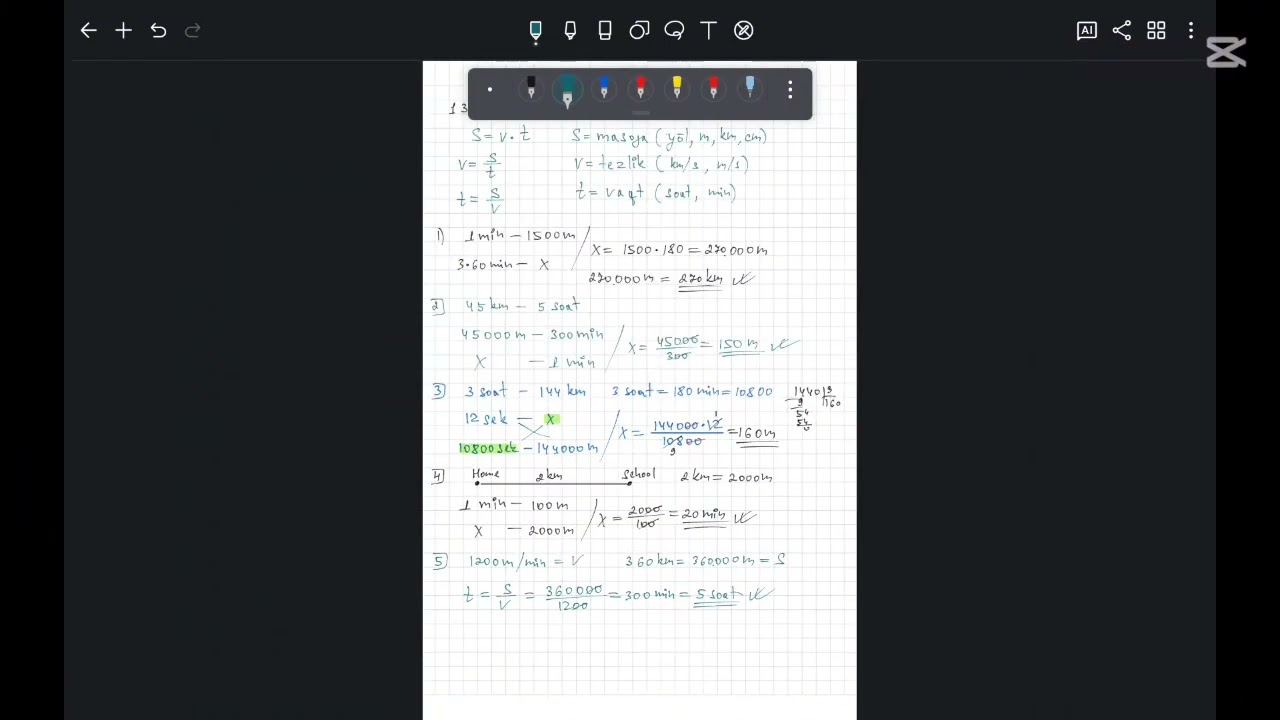 AI
13
S = v · t    S = masofa (yo'l, m, km, cm)
v = s/t    v = tezlik (km/s, m/s)
t = s/v    t = vaqt (soat, min)
1) 1 min – 1500 m    x = 1500 · 180 = 270.000 m
3·60 min – x    270.000 m = 270 km
2 45 km – 5 soat
45000 m – 300 min    x = 45000/300 = 150 m
x – 1 min
3 3 soat – 144 km    3 soat = 180 min = 10800    1440 9
12 sek – x    x = 144000 · 12/10800 = 160 m    9 160
10800 sek – 144000 m    9    54
54
4 Home 2 km School    2 km = 2000 m
1 min – 100 m    x = 2000/100 = 20 min
x – 2000 m
5 1200 m/min = V    360 km = 360.000 m = S
t = S/V = 360000/1200 = 300 min = 5 soat